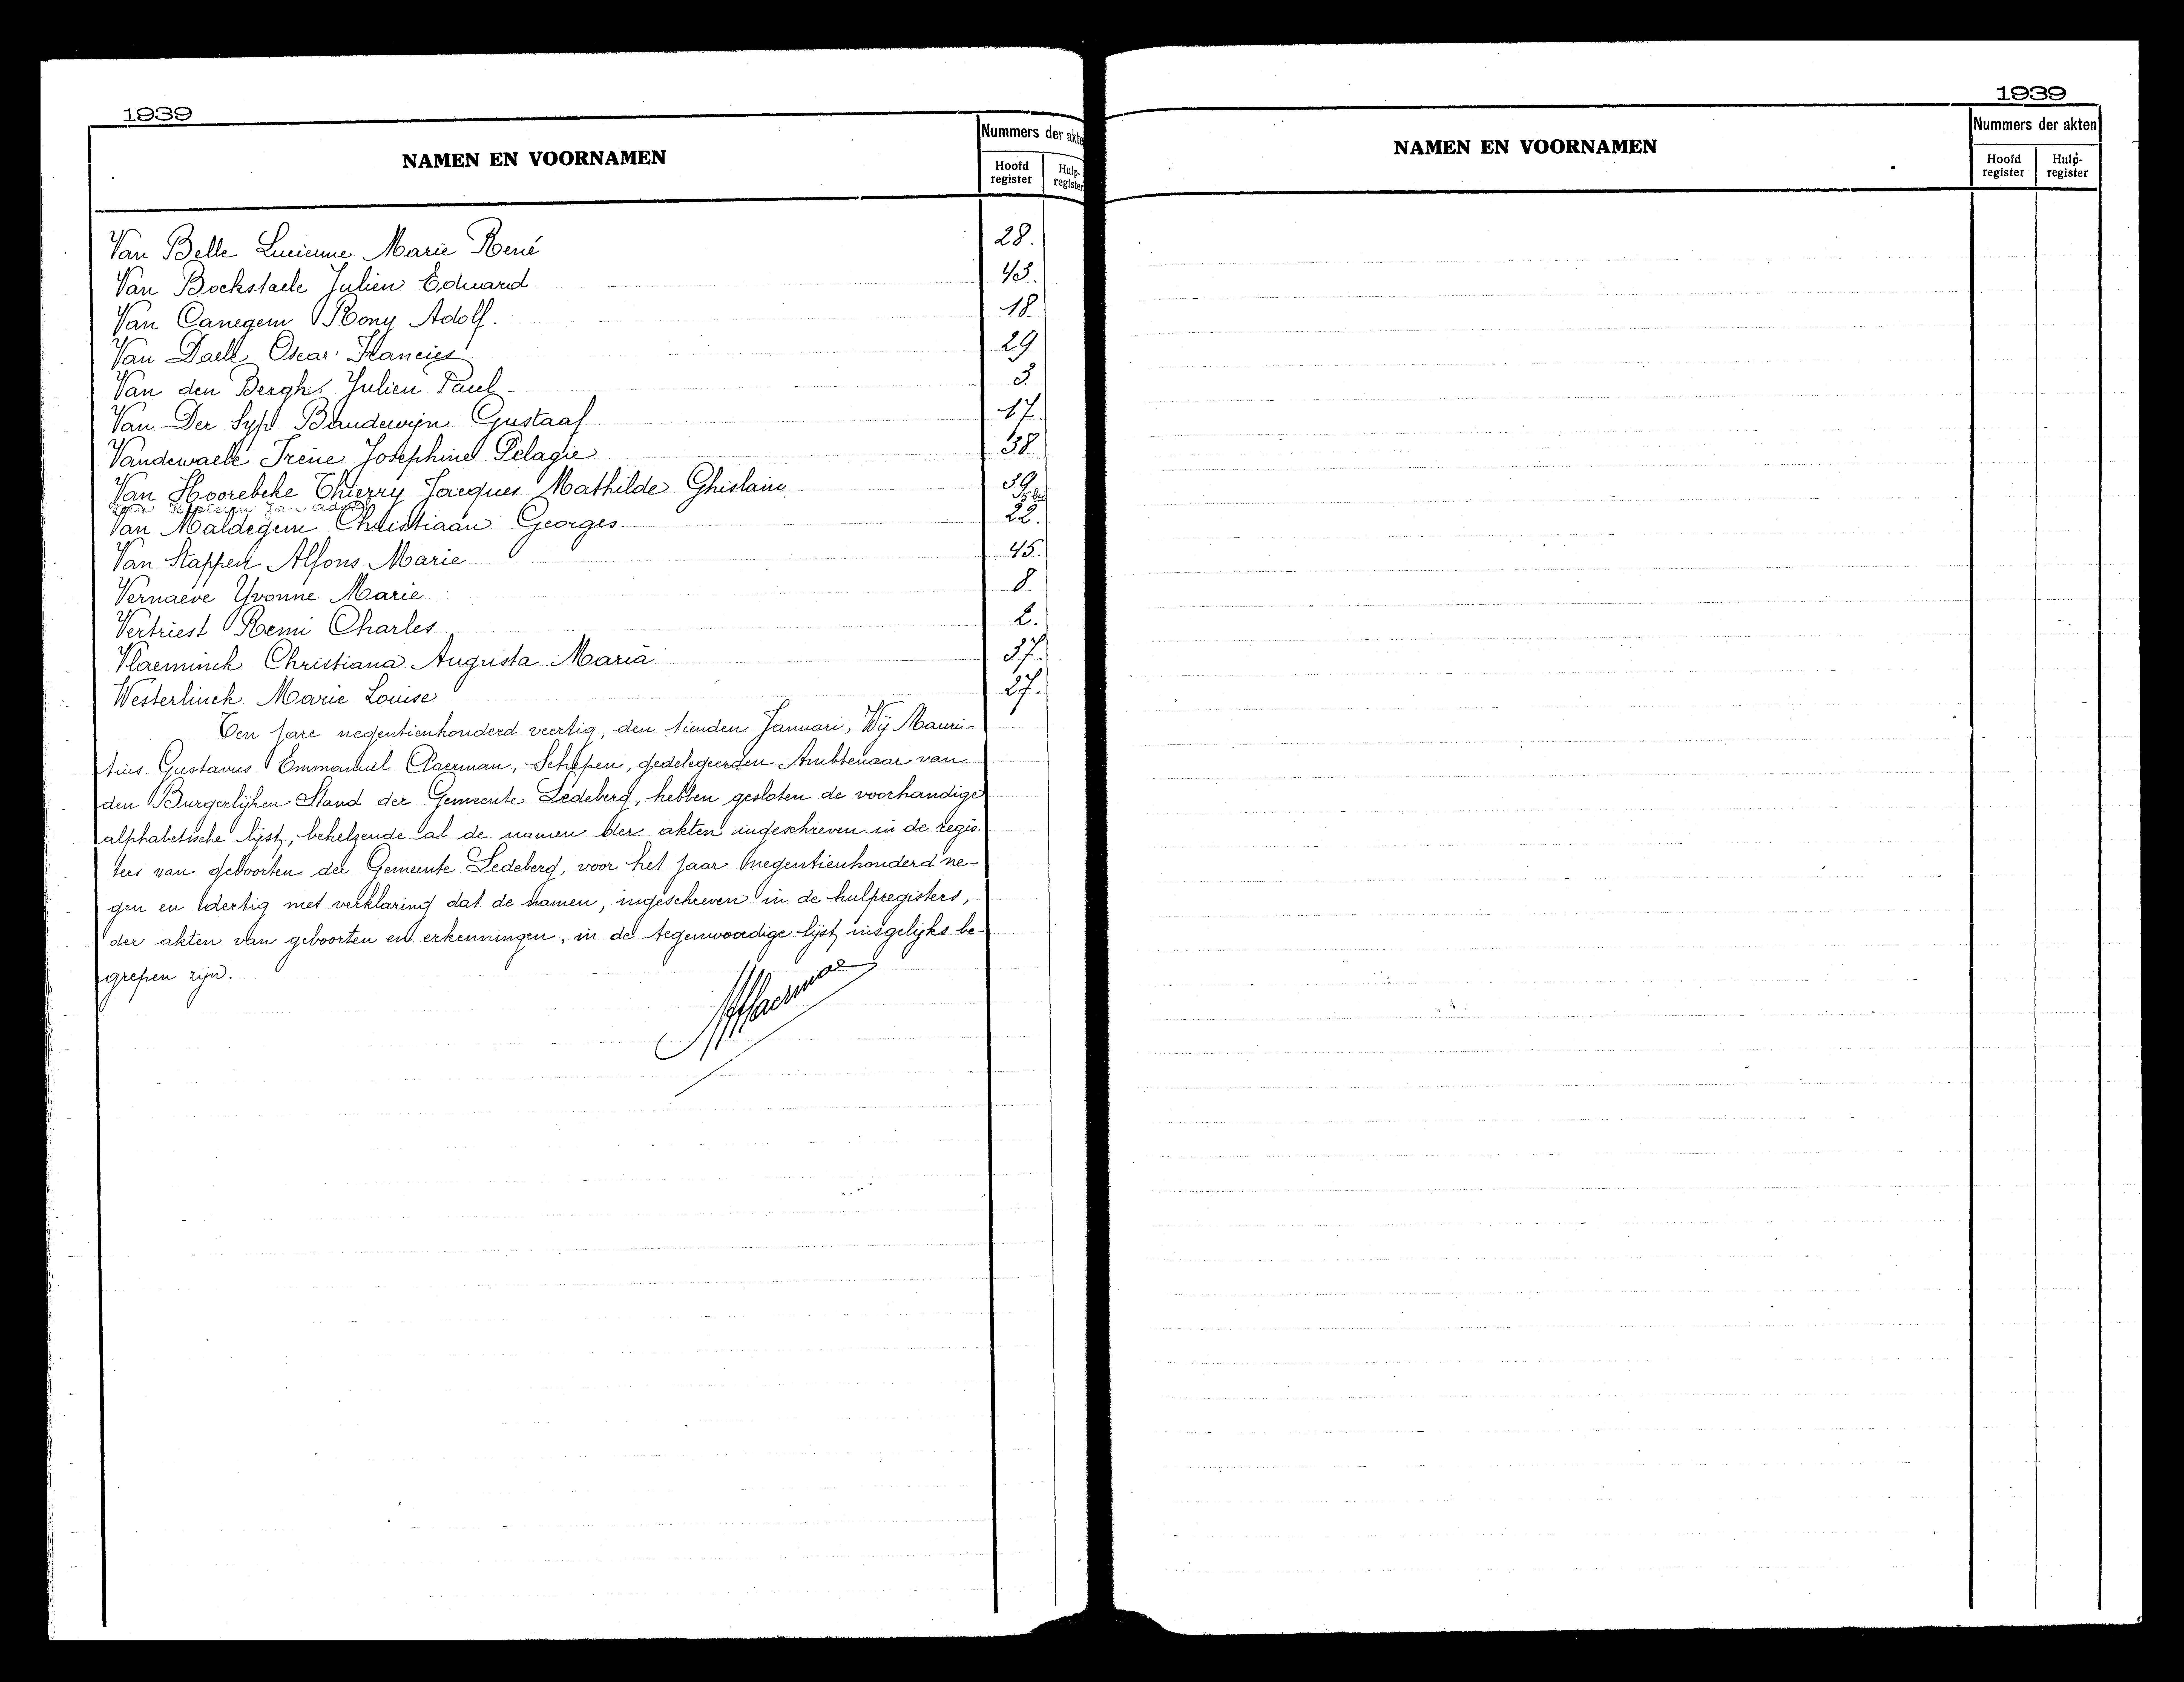 1939
NAMEN EN VOORNAMEN
Nummers der akte
Hoofd register
Hulp- register
Van Belle Lucienne Marie René 28.
Van Bockstaele Julien Eduard 43.
Van Canegem Rony Adolf. 18.
Van Daele Oscar Francies 29
Van den Berghe Julien Paul 3
Van Der Syp Baudewijn Gustaaf 17.
Vandewaele Irène Josephine Pelagie 38
Van Hoorebeke Thierry Jacques Mathilde Ghislain 39
Jan
Van Maldegem Christiaan Georges. 22.
Van Stappen Alfons Marie 45.
Vernaeve Yvonne Marie 8
Vertriest Remi Charles 2.
Vlaeminck Christiana Augusta Maria 37
Westerlinck Marie Louise 27.
Ten jare negentienhonderd veertig, den tienden Januari, Wij Mauri-
tius Gustavus Emmanuel Claerman, Schepen, gedelegeerden Ambtenaar van
den Burgerlijken Stand der Gemeente Ledeberg, hebben gesloten de voorhandige
alphabetische lijst, behelzende al de namen der akten ingeschreven in de regis-
ters van geboorten der Gemeente Ledeberg, voor het jaar negentienhonderd ne-
gen en dertig met verklaring dat de namen, ingeschreven in de hulpregisters,
der akten van geboorten en erkenningen, in de tegenwoordige lijst insgelijks be-
grepen zijn.
1939
NAMEN EN VOORNAMEN
Nummers der akten
Hoofd register
Hulp- register